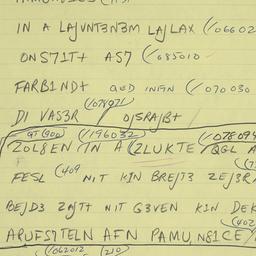 IN A LAJVNT3N3M LAJLAX (/06602
ONS71T+ AS7 (/685010
FARB1ND+ QED INFIN (/070030
(/07807/
DI VAS3R OJSRAJB+
(/196032 (/078094
ZOLBEN IN A ZLUKTE/QGL A
FESL (409 NIT KIN BREJT3 ZEJ3R
BEJD3 ZAJT+ NIT G3VEN KIN DEK
(402
ARUFSTELN AFN PAMU, N81CE
(/062012 (210